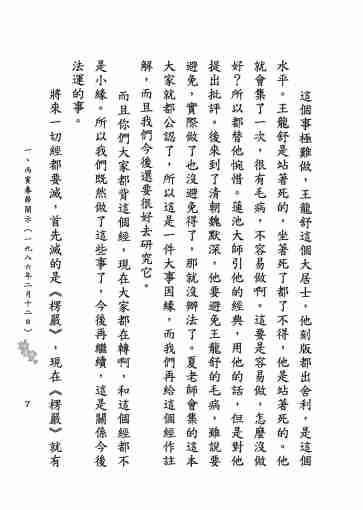 這個事極難做，王龍舒這個大居士，他刻版都出舍利，是這個
水平。王龍舒是站著死的，坐著死了都了不得，他是站著死的。他
就會集了一次，很有毛病，不容易做啊。這要是容易做，怎麼沒做
好？所以都替他惋惜。蓮池大師引他的經典，用他的話，但是對他
提出批評。後來到了清朝魏默深，他要避免王龍舒的毛病，雖說要
避免，實際做了也沒避免得了，那就沒辦法了。夏老師會集的這本
大家就都公認了，所以這是一件大事因緣，而我們再給這個經作註
解，而且我們今後還要很好去研究它。
而且你們大家都背這個經，現在大家都在轉啊，和這個經都不
是小緣。所以我們既然做了這些事了，今後再繼續，這是關係今後
法運的事。
將來一切經都要滅，首先滅的是《楞嚴》，現在《楞嚴》就有
一、丙寅春節開示（一九八六年二月十二日）
7